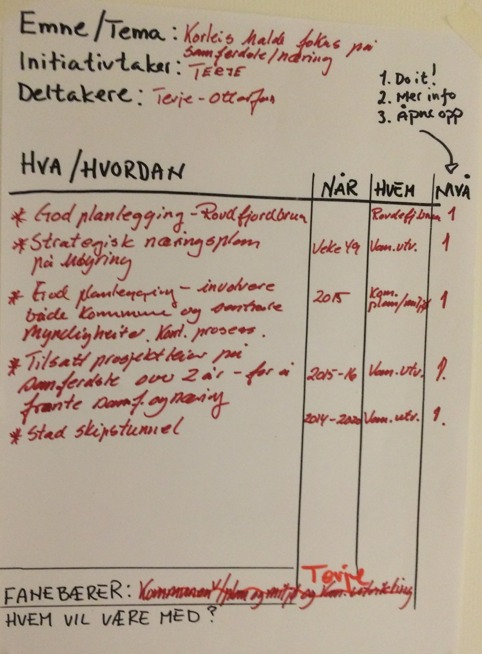 Emne/Tema: Korleis halde fokus på
samferdsle/næring
Initiativtaker: TERJE
Deltakere: Terje - Otterfun
1. Do it!
2. Mer info
3. Åpne opp
HVA/HVORDAN NÅR HVEM NIVÅ
* God planlegging - Rovdfjordbrun Rovdefj.brua 1
* Strategisk næringsplan Veke 49 Vam.utv. 1
på høyring
* God planlegging - involvere 2015 Kom. 1
både kommune og sentrale plan/miljø
Myndigheiter. Kont. prosess.
* Tilsatt prosjektleiar på
samferdsle over 2 år - for å 2015-16 Vam.utv. 1.
fremte samf. og næring
* Stad skipstunnel 2014-2020 Vam.utv. 1.
Terje
FANEBÆRER:
HVEM VIL VÆRE MED?